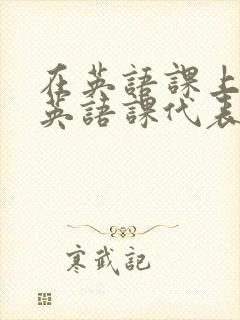 在英語課上
英語課代表
寒武記